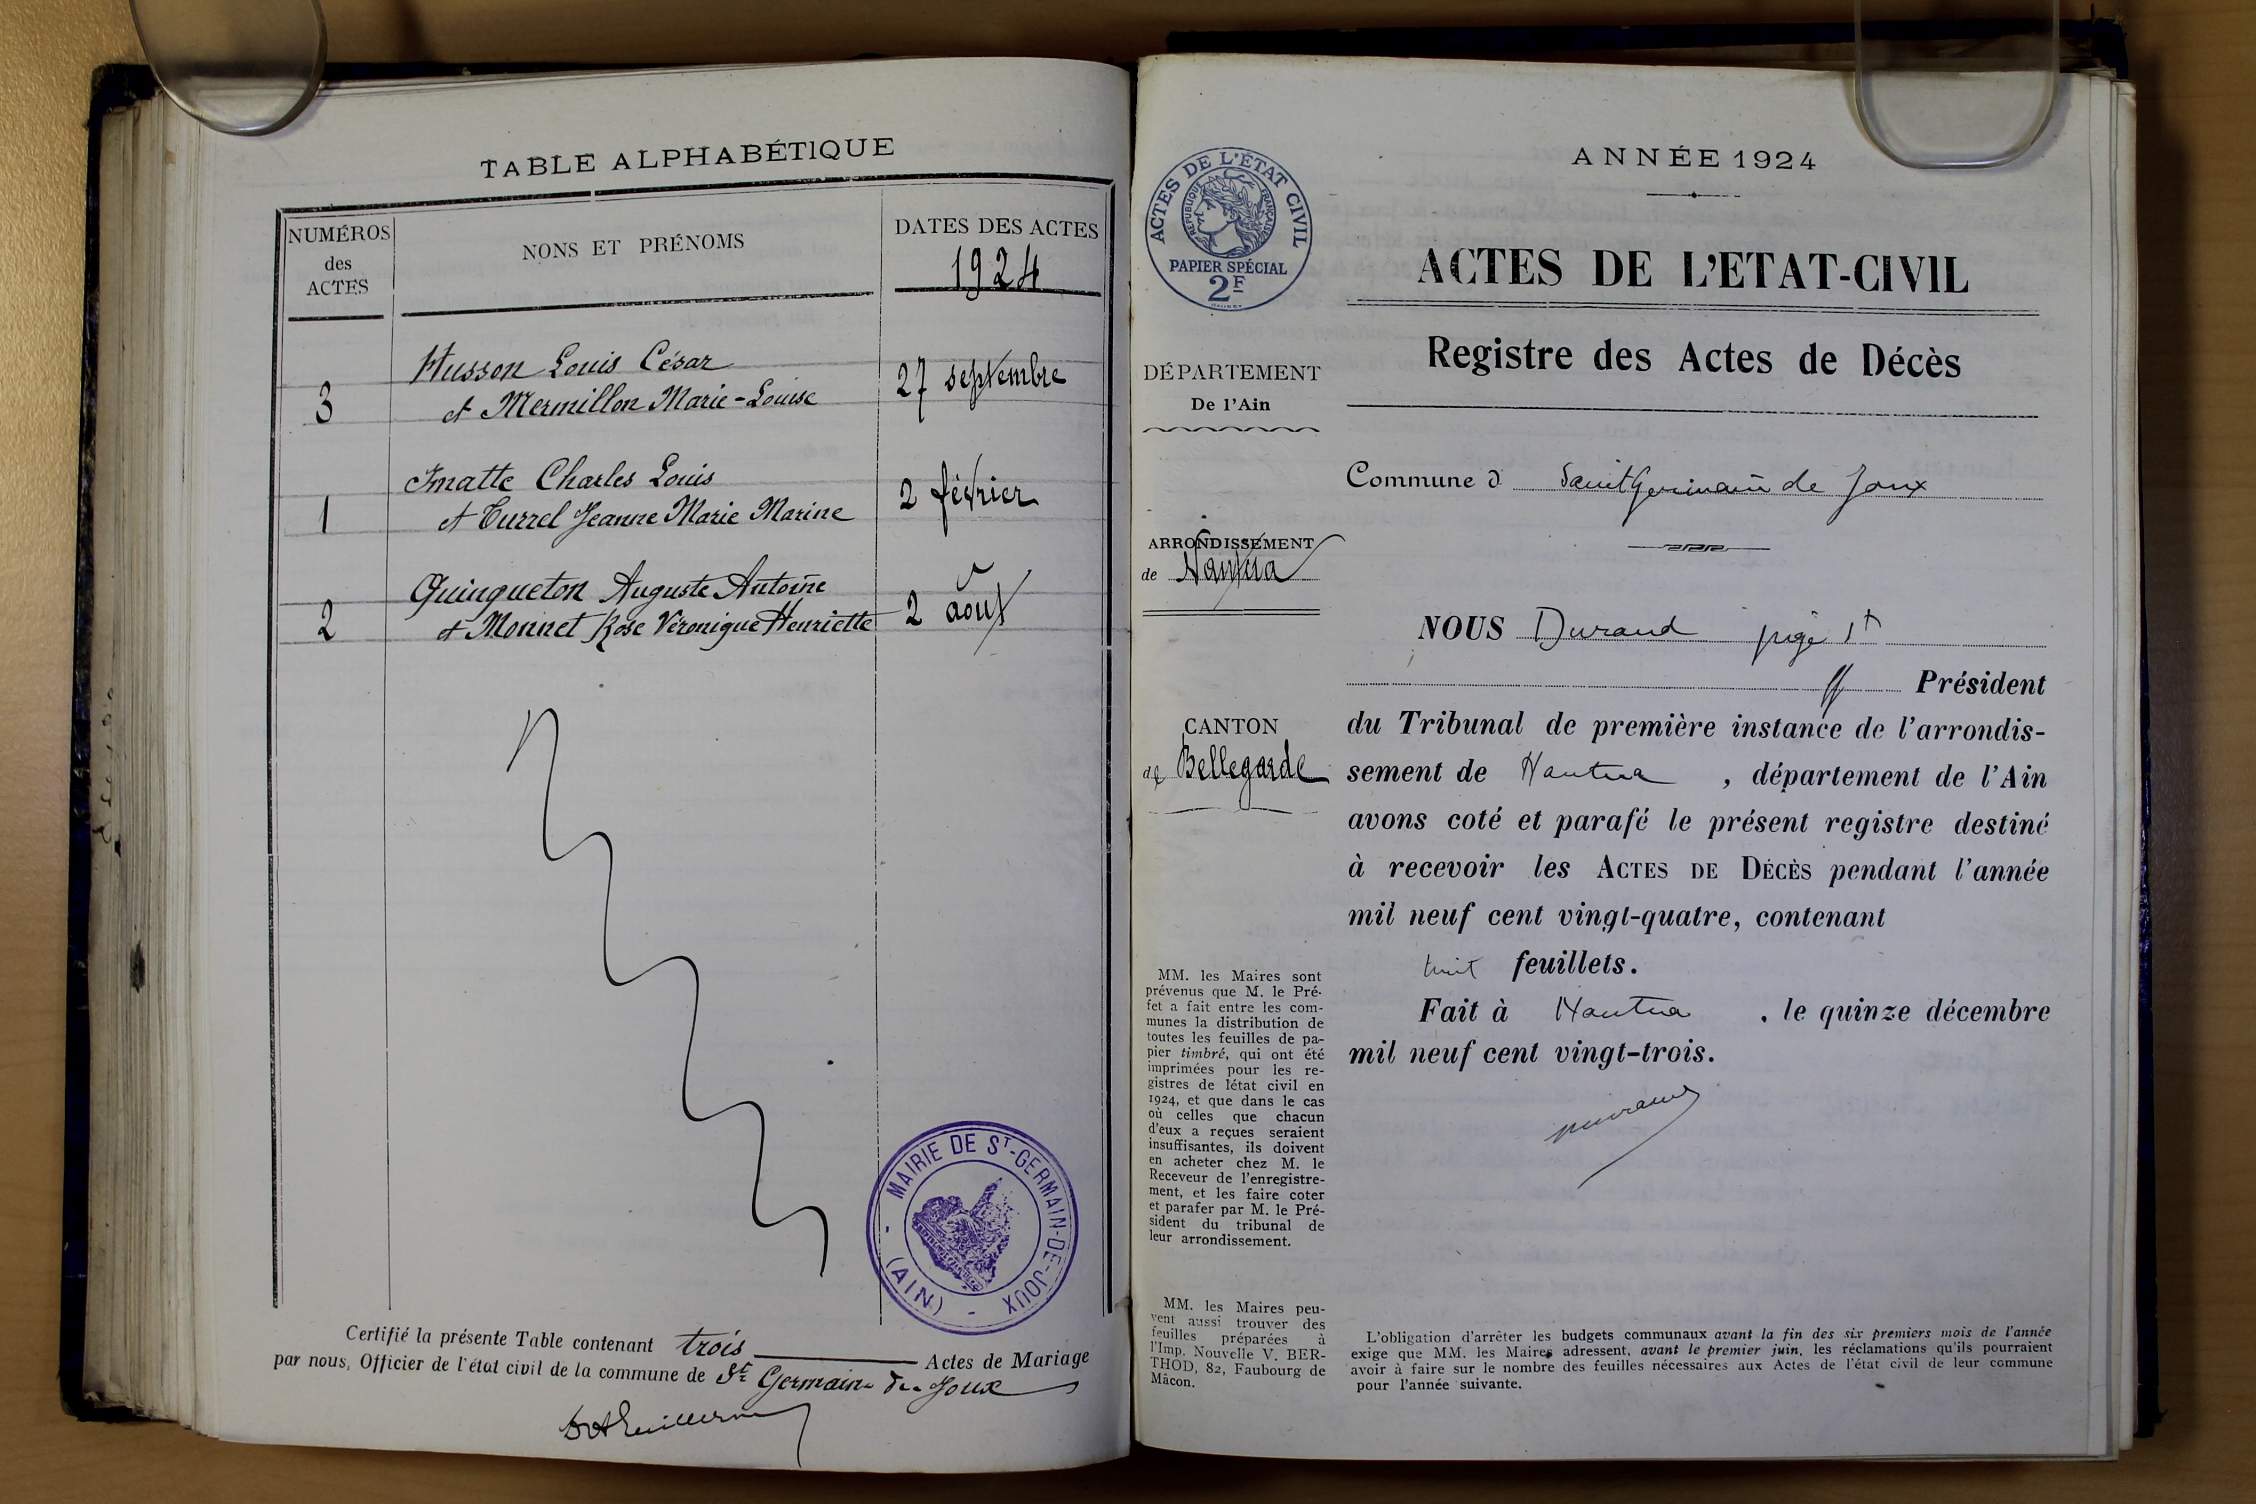 TABLE ALPHABÉTIQUE
NUMÉROS
des
ACTES
NONS ET PRÉNOMS
DATES DES ACTES
1924
Husson Louis César
3 et Mermillon Marie-Louise
27 septembre
Jmatte Charles Louis
1 et Turrel Jeanne Marie Marine
2 février
Quinqueton Auguste Antoine
2 et Monnet Rose Véronique Henriette
2 août
MAIRIE DE ST-GERMAIN-DE-JOUX
(AIN)
Certifié la présente Table contenant trois Actes de Mariage
par nous, Officier de l'état civil de la commune de St Germain de Joux
ACTES DE L'ÉTAT CIVIL
RÉPUBLIQUE FRANÇAISE
PAPIER SPÉCIAL
2F
DÉPARTEMENT
De l'Ain
ARRONDISSEMENT
de Nantua
CANTON
de Bellegarde
MM. les Maires sont
prévenus que M. le Pré-
fet a fait entre les com-
munes la distribution de
toutes les feuilles de pa-
pier timbré, qui ont été
imprimées pour les re-
gistres de létat civil en
1924, et que dans le cas
où celles que chacun
d'eux a reçues seraient
insuffisantes, ils doivent
en acheter chez M. le
Receveur de l'enregistre-
ment, et les faire coter
et parafer par M. le Pré-
sident du tribunal de
leur arrondissement.
MM. les Maires peu-
vent aussi trouver des
feuilles préparées à
l'Imp. Nouvelle V. BER-
THOD, 82, Faubourg de
Mâcon.
ANNÉE 1924
ACTES DE L'ETAT-CIVIL
Registre des Actes de Décès
Commune d Saint Germain de Joux
NOUS Durand juge st
ff Président
du Tribunal de première instance de l'arrondis-
sement de Nantua , département de l'Ain
avons coté et parafé le présent registre destiné
à recevoir les ACTES DE DÉCÈS pendant l'année
mil neuf cent vingt-quatre, contenant
huit feuillets.
Fait à Nantua , le quinze décembre
mil neuf cent vingt-trois.
Durand
L'obligation d'arrêter les budgets communaux avant la fin des six premiers mois de l'année
exige que MM. les Maires adressent, avant le premier juin, les réclamations qu'ils pourraient
avoir à faire sur le nombre des feuilles nécessaires aux Actes de l'état civil de leur commune
pour l'année suivante.